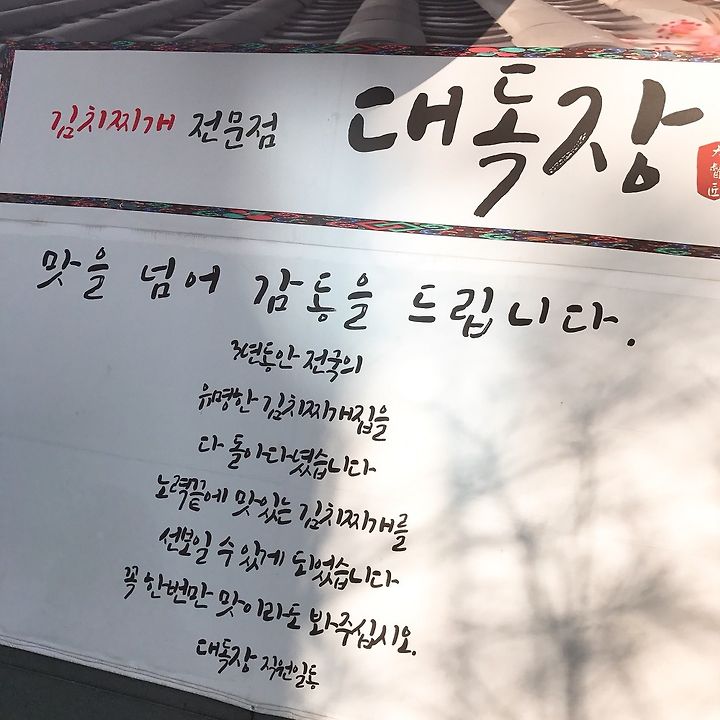 김치찌개 전문점 대독장
大督匠
맛을 넘어 감동을 드립니다.
3년동안 전국의
유명한 김치찌개집을
다 돌아다녔습니다
노력끝에 맛있는 김치찌개를
선보일 수 있게 되었습니다
꼭 한번만 맛이라도 봐주십시오.
대독장 직원일동